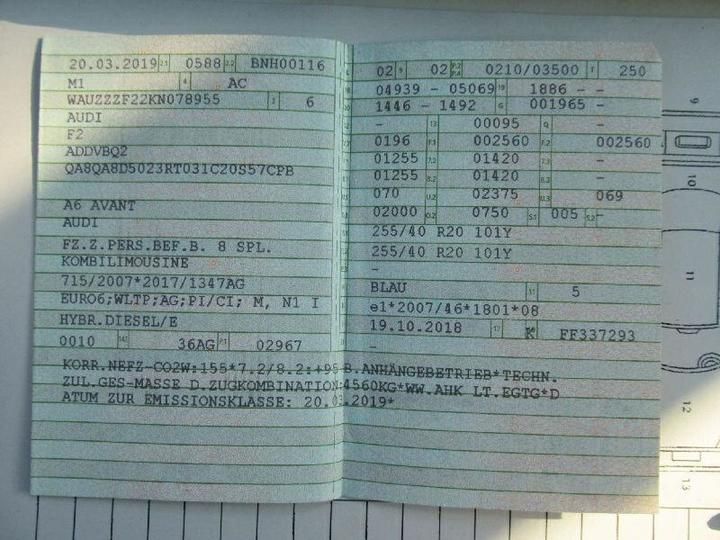 20.03.2019 2.1 0588 2.2 BNH00116
M1 4 AC
WAUZZZF22KN078955 3 6
AUDI
F2
ADDVBQ2
QA8QA8D5023RT031C20S57CPB
A6 AVANT
AUDI
FZ.Z.PERS.BEF.B. 8 SPL.
KOMBILIMOUSINE
715/2007*2017/1347AG
EURO6;WLTP;AG;PI/CI; M, N1 I
HYBR.DIESEL/E
0010 14.1 36AG P.1 02967
02 9 02 P.2 P.4 0210/03500 T 250
04939 - 05069 19 1886 - -
1446 - 1492 G 001965 -
- 13 00095 Q -
0196 F.1 002560 F.2 002560
01255 7.2 01420 7.3 -
01255 8.2 01420 8.3 -
070 U.2 02375 U.3 069
02000 O.2 0750 S.1 005 S.2 -
255/40 R20 101Y
255/40 R20 101Y
-
BLAU 11 5
e1*2007/46*1801*08
19.10.2018 17 K 16 FF337293
-
KORR.NEFZ-CO2W:155*7.2/8.2:+95 B.ANHÄNGEBETRIEB*TECHN.
ZUL.GES-MASSE D.ZUGKOMBINATION:4560KG*WW.AHK LT.EGTG*D
ATUM ZUR EMISSIONSKLASSE: 20.03.2019*
9
10
11
12
13